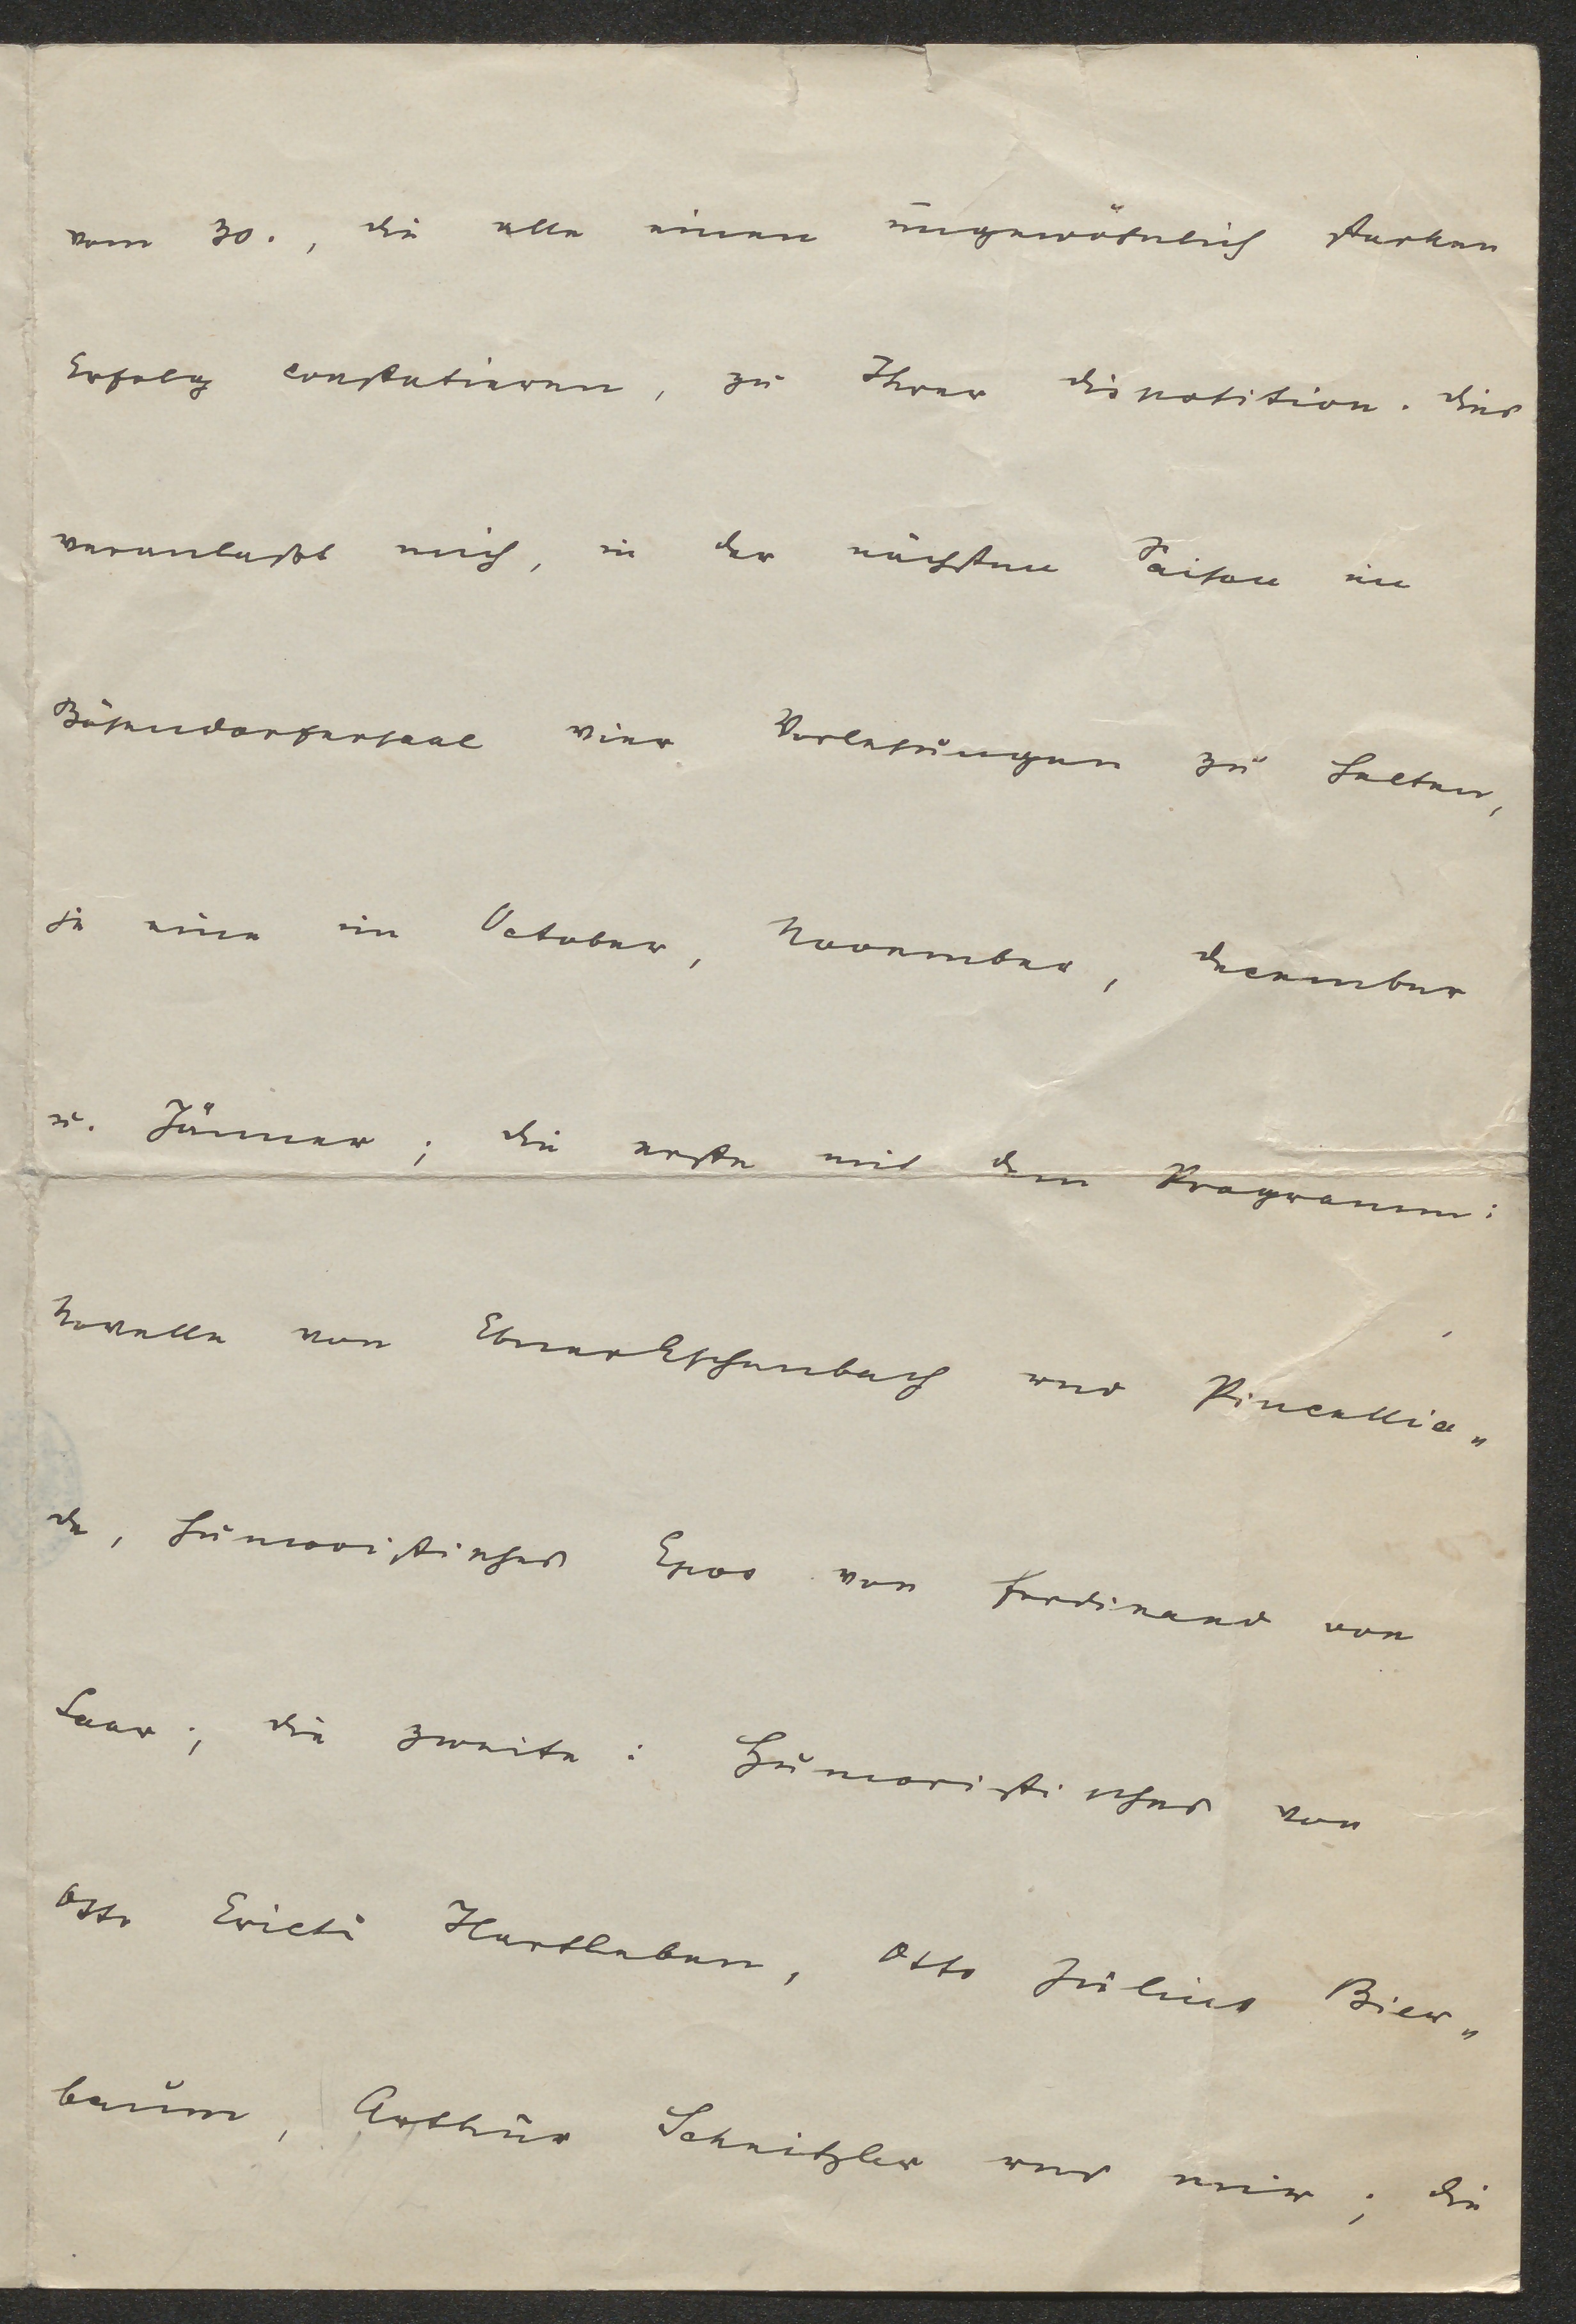 vom 30., die alle einen ungewöhnlich starken
Erfolg constatieren, zu Ihrer Disposition. Dies
veranlaßt mich, in der nächsten Saison im
Bösendorfersaal vier Vorlesungen zu halten,
je eine im October, November, December
u. Jänner; die erste mit dem Programm:
Novelle von EbnerEschenbach und Pincellia„
de, humoristisches Epos von Ferdinand von
Saar; die zweite: Humoristisches von
Otto Erich Hartleben, Otto Julius Bier„
baum, Arthur Schnitzler und mir; die